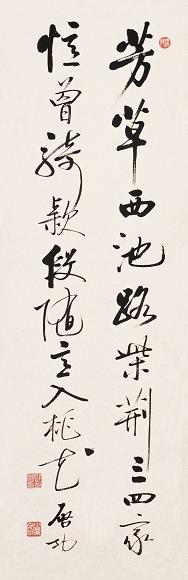 芳草西池路柴荆三四家
忆曾骑款段随意入桃花 启功